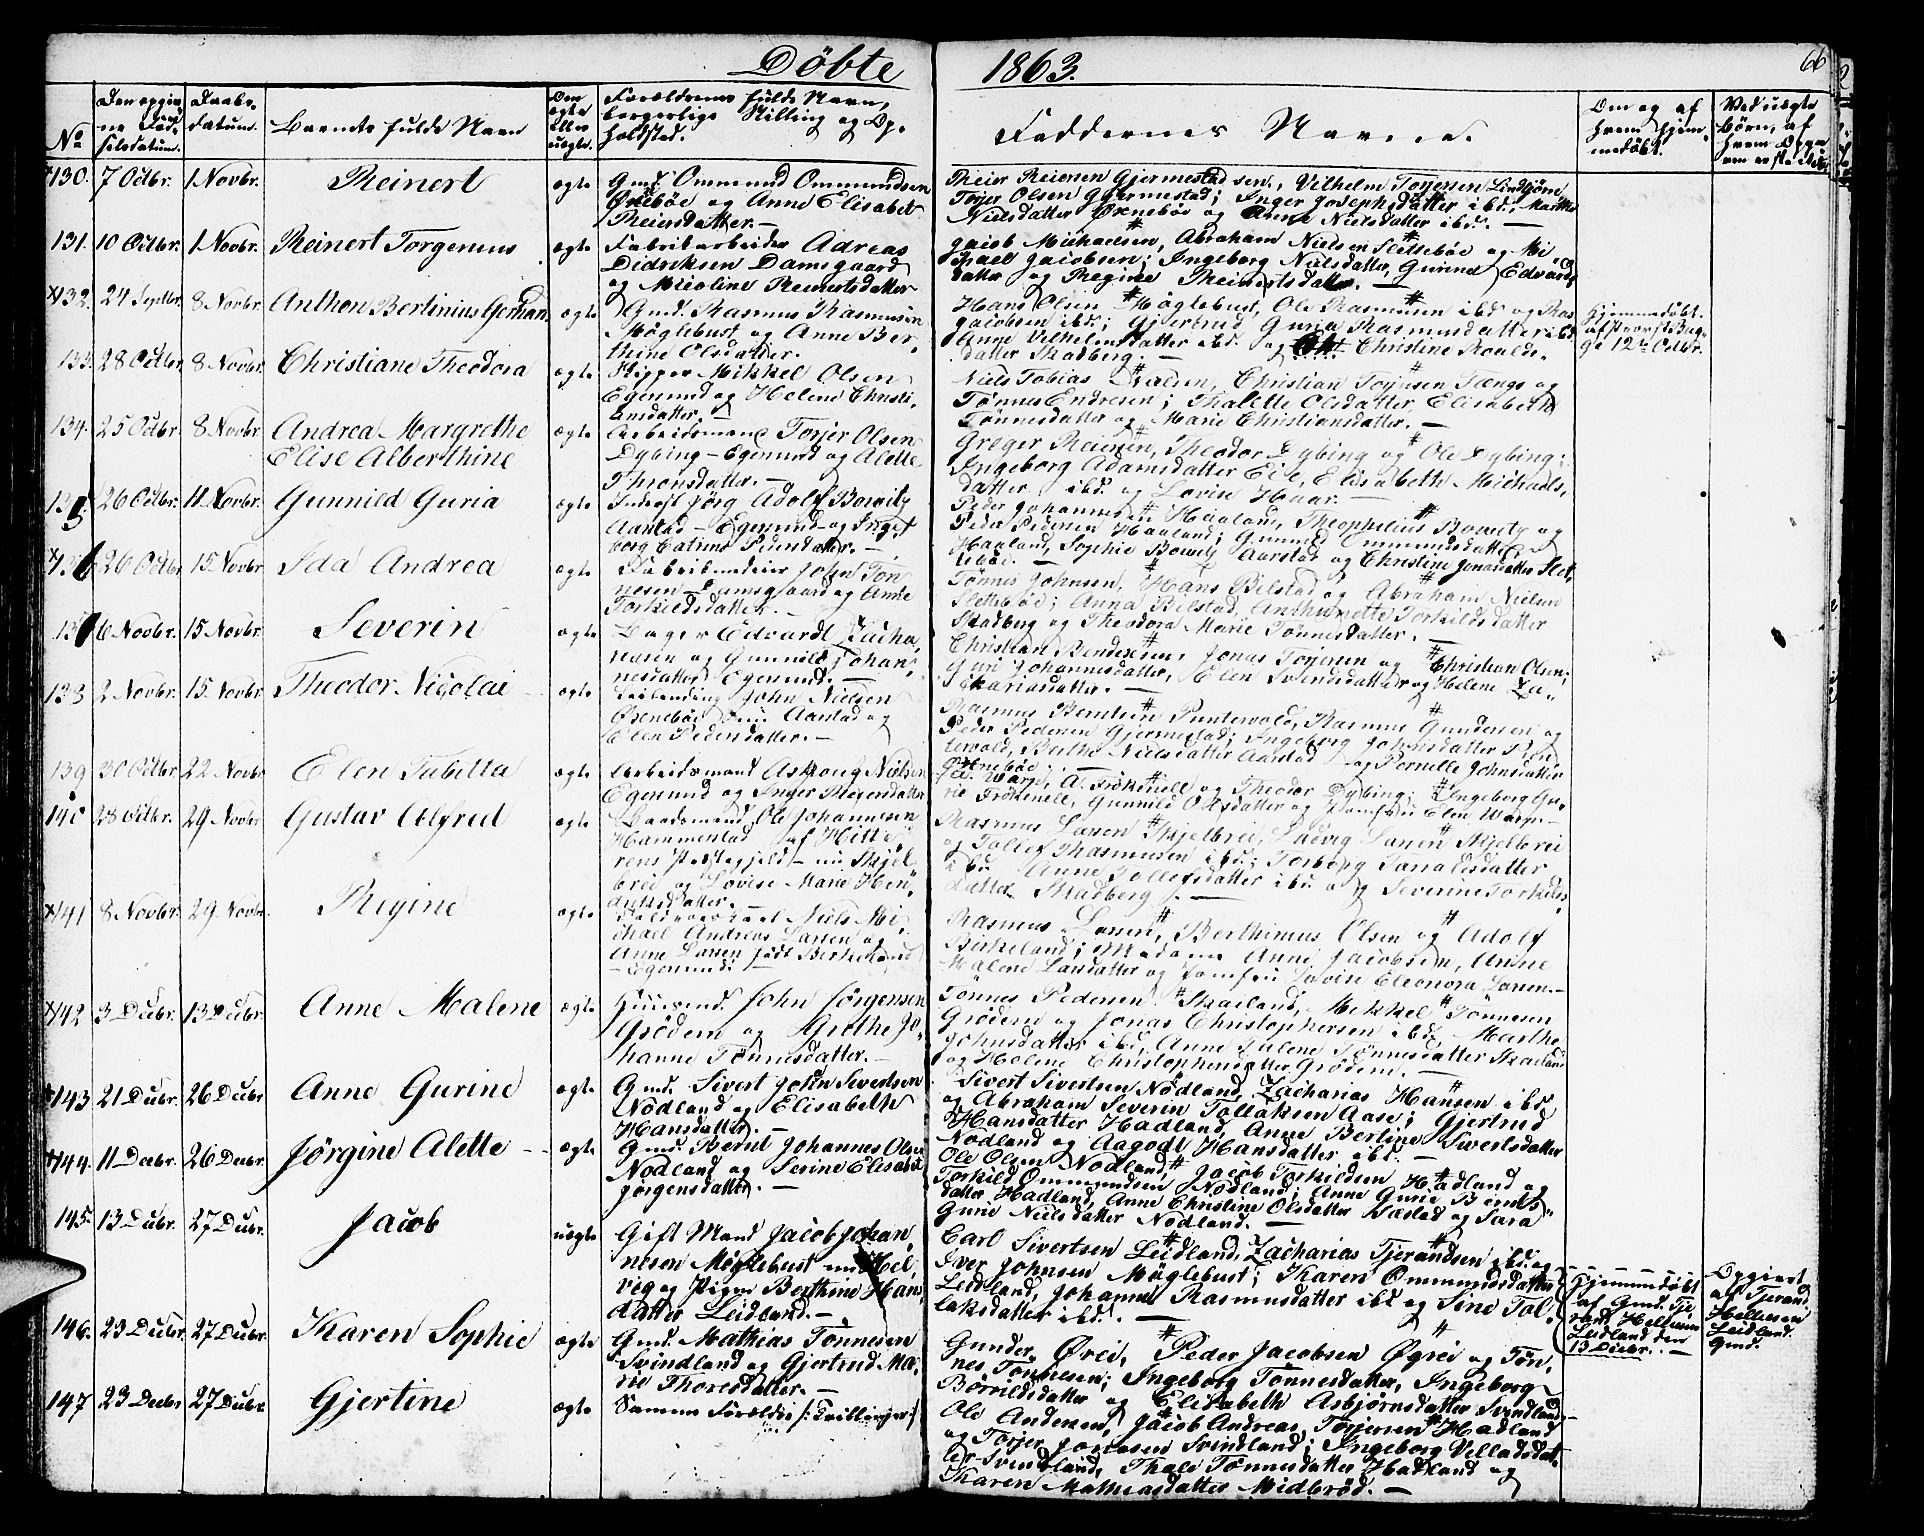 Döbte 1863.
66
No
Den opgivne Fødselsdatum.
Daabsdatum.
Barnets fulde Navn
Om ægte eller uægte.
Forældrenes fulde Navn, borgerlige Stilling og Opholdsted.
Faddernes Navne.
Om og af hvem hjemmedøbt.
130. 7 Octbr. 1 Novbr. Reinert ægte
Gmd Ommund Ommundsen
Øxnebøe og Anne Elisabet
Reiersdatter. —
Reier Reiersen Gjermestad sen., Vilhelm Torjersen
Torjer Olsen Gjermestad; Inger Josephsdatter ibd., Marthe
Nielsdatter Øxnebøe og Anne Nielsdatter ibd. —
131. 10 Octbr. 1 Novbr. Reinert Torgenius ægte
Fabrikarbeider Adreas
Didriksen Damsgaard
og Micoline Reinertsdatter
Jacob Michaelsen, Abraham Nielsen Slettebøe og Mi-
chael Jacobsen; Ingeborg Nielsdatter, Gurine Edvards
datter og Regine Reinertsdatter. —
132. 24 Septbr. 8 Novbr. Anthon Bertinius Gerhan ægte
Gmd. Rasmus Rasmusen
Møglebust og Anne Ber-
thine Olsdatter.
Hans Olsen Møglebust, Ole Rasmusen ibd og Ras
Jacobsen ibd; Gjertrud Guria Rasmusdatter ibd
Anne Vilhelmsdatter ibd. og Christine Roalds-
datter Skadberg. —
Hjemmedøbt
12te Octbr.
133. 28 Octbr. 8 Novbr. Christiane Theodora ægte
Skipper Mikkel Olsen
Egersund og Helene Christi-
ansdatter. —
Niels Tobias Christian Torjusen Tængs og
Tønnes Endresen; Thalette Olsdatter, Elisabeth
Tønnesdatter og Marie Christiansdatter. —
134. 25 Octbr. 8 Novbr. Andrea Margrethe
Elise Alberthine ægte
Arbeidsmand Torjer Olsen
Dybing – Egersund og Alette
Thronsdatter. —
Greger Reiersen, Theodor Dybing og Ole Dybing;
Ingeborg Adamsdatter Eie, Elisabeth Michaels-
datter ibd. og Lovise Haar. —
135. 26 Octbr. 11 Novbr. Gunnild Guria ægte
Jörg Adolf Bowitz
Aarstad – Egersund og Inge-
borg Catrine Pedersdatter. —
Peder Johannesen Haaland, Theophilius Bowitz og
Peder Pedersen Haaland; Gunnild Ommundsdatter
Haaland, Sophie Bowitz Aarstad og Christine Jonasdatter Slet-
tebøe. —
26 Octbr 15 Novbr. Ida Andrea ægte
Fabrikarbeider John Tøn-
nesen Damsgaard og Anne
Torkildsdatter. —
Tønnes Johnsen, Hans Bilstad og Abraham Nielsen
Slettebøe; Anna Bilstad, Anthonette Torkildsdatter
Skadberg og Theodora Marie Tønnesdatter. —
6 Novbr. 15 Novbr. Severin ægte
Bager Edvardt Zacha-
riasen og Gunnild Johan-
nesdatter Egersund. —
Christian Bendixsen, Jonas Torjersen og Christian Olsen,
Guri Johannesdatter, Elen Svendsdatter og Helene Za-
chariasdatter. —
138 2 Novbr. 15. Novbr. Theodor Nicolai ægte
John Nielsen
Øxnebøe nu Aarstad og
Elen Pedersdatter. —
Rasmus Berntsen Puntervold, Rasmus Gundersen og
Peder Pedersen Gjermestad; Ingeborg Johnsdatter Pun-
tervold, Berthe Nielsdatter Aarstad og Pernille Johnsdatter
Øxnebøe.
139 30 Octbr. 22 Novbr Elen Tabitta ægte
Arbeidsmand Askoug Nielsen
Egersund og Inger Reiersdatter
A. Frökenell og Theodor Dybing; Ingeborg Gu-
rie Frökenell, Gunnild Olsdatter og Jomfru Elen
140 28 Octbr. 29 Novbr Gustav Alfred ægte
Baadsmand Ole Johannesen
Hammerstad af Hitte-
røens Præstegjeld – nu Skjel-
brei og Lovise Marie Hen-
driksdatter. —
Rasmus Larsen Skjelbrei, Ludvig Larsen Skjelbrei
og Tollef Rasmusen ibd.; Torborg Tarraldsdatter
ibd. Anne Tollefsdatter ibd. og Severine Torkilds-
datter Skadberg. —
141 8 Novbr. 29. Novbr. Regine ægte
Niels Mi-
chael Andreas Larsen og
Anne Larsen født Berkeland
– Egersund.
Rasmus Larsen, Berthinius Olsen og Adolf
Birkeland; Madame Anne Jacobsen, Anne
Malene Larsdatter og Jomfru Lovise Eleonora Larsen. —
142 3 Decbr. 13 Decbr. Anne Malene ægte
Huusmd. John Jörgensen
Grödem og Grethe Jo-
hanne Tönnesdatter. —
Tönnes Pedersen Skaeland, Mikkel Tönnesen
Grödem og Jonas Christophersen ibd. Marthe
Johnsdatter ibd, Anne Malene Tönnesdatter Skaeland
og Helene Christophersdatter Grödem. —
143 21 Decbr. 26 Decbr. Anne Gurine ægte
Gmd. Sivert John Sivertsen
Nodland og Elisabeth
Hansdatter. —
Sivert Sivertsen Nodland, Zacharias Hansen ibd
og Abraham Severin Tollaksen Aase; Gjertrud
Hansdatter Hadland, Anne Bertine Sivertsdatter
Nodland og Aagodt Hansdatter ibd. —
144. 11 Decbr. 26 Decbr. Jörgine Alette ægte
Gmd. Bernt Johannes Olsen
Nodland og Serine Elisabet
Jörgensdatter. —
Ole Olsen Nodland, Jacob Torkildsen Hadland og
Torkild Ommundsen Nodland; Anne Gurie Bernts-
datter Hadland, Anne Christine Olsdatter og Sara
Gurie Nielsdatter Nodland. —
145. 13 Decbr. 27 Decbr. Jacob uægte
Gift Mand Jacob Johan-
nesen Møglebust nu Hel-
vig og Pigen Berthine Hans-
datter Leidland. —
Carl Sivertsen Leidland, Zacharias Tjerandsen ibd. og
Iver Johnsen Møglebust; Karen Ommundsdatter
Leidland, Johanne Rasmusdatter ibd og Sine Tol-
laksdatter ibd. —
Hjemmedøbt
af Gmd. Tje-
rand Hellesen
Leidland den
13 Decbr. —
Opgivet
af Tjerand
Hellesen
Leidland
Gmd.
146. 23 Decbr. 27 Decbr. Karen Sophie ægte
Gmd. Mathias Tönnesen
Svindland og Gjertrud Ma-
rie Thoresdatter. —
Gunder Ørei, Peder Jacobsen Øgrei og Tön-
nes Tönnesen; Ingeborg Tönnesdatter, Ingeborg
Börrildsdatter og Elisabeth Asbjörnsdatter Svindland. —
147 23 Decbr 27 Decbr. Gjertine ægte
Samme Forældre /: Tvillinger :/
Ole Andersen, Jacob Andreas Torjersen Hadland
og Torjer Jonassen Svindland; Ingeborg Velladsdat-
ter Svindland, Thale Tönnesdatter Hadland og
Karen Mathiasdatter Midbröd. —